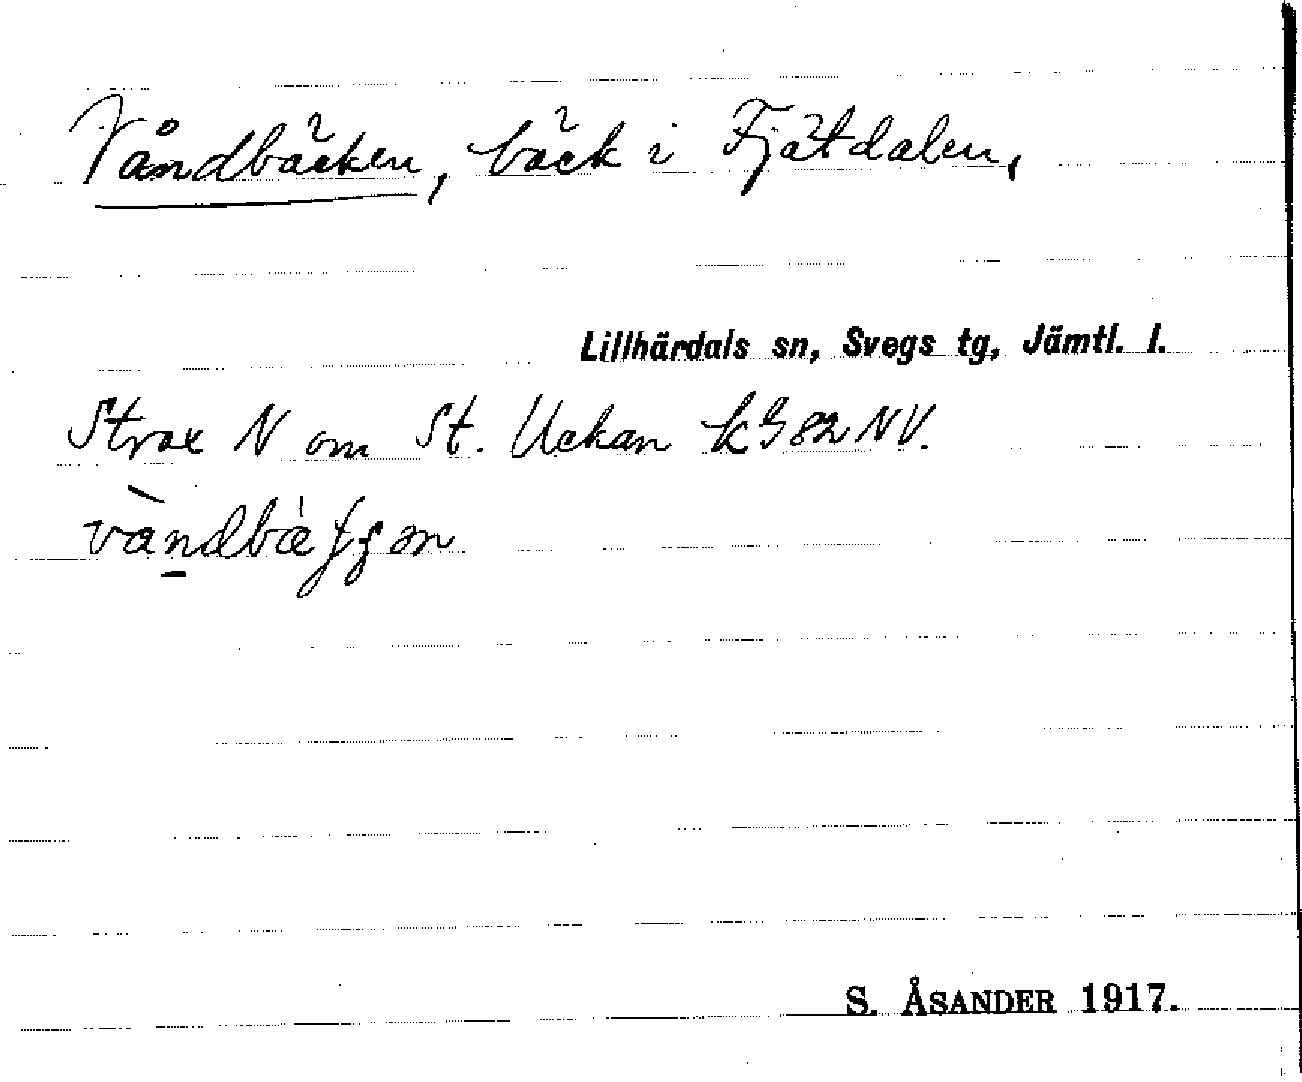 Våndbäcken, bäck i Fjätdalen,
Lillhärdals sn, Svegs tg, Jämtl. l.
Strax N om St. Uckan kg 82 NV.
S. ÅSANDER 1917.